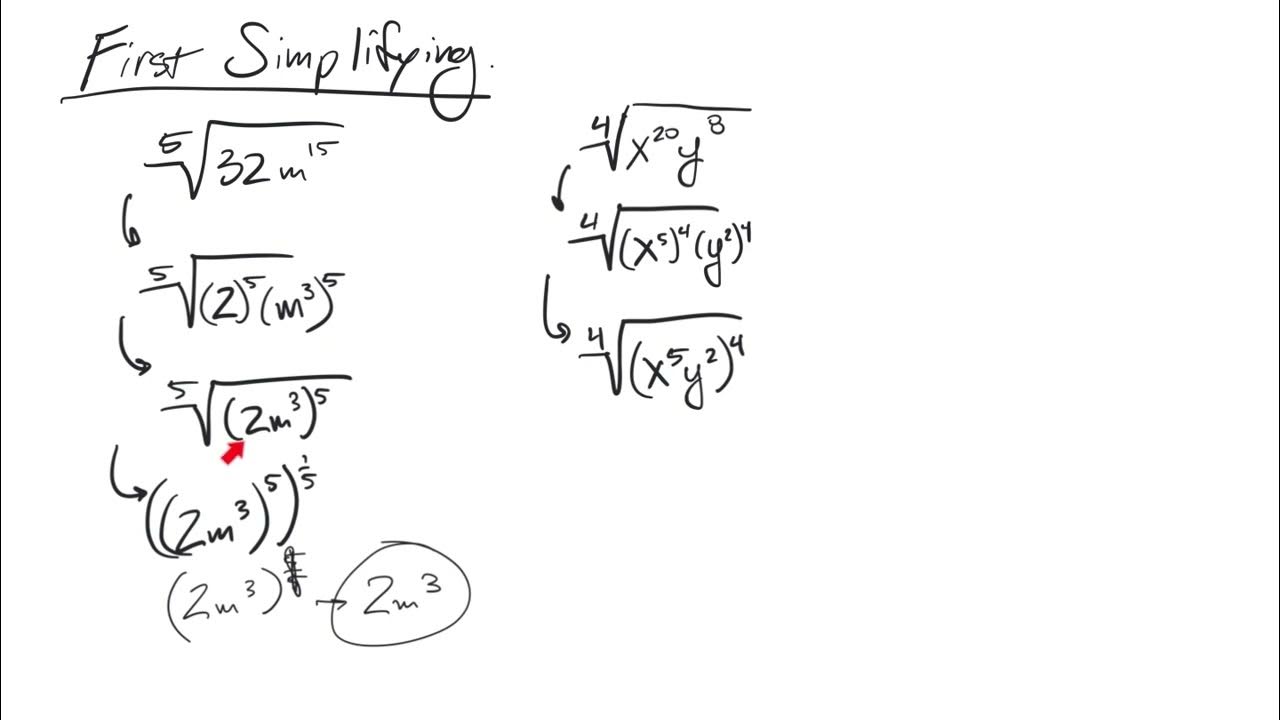 First Simplifying.
⁵√(32m¹⁵)
⁵√((2)⁵(m³)⁵)
⁵√((2m³)⁵)
((2m³)⁵)^(1/5)
(2m³) → 2m³
⁴√(x²⁰y⁸)
⁴√((x⁵)⁴(y²)⁴)
⁴√((x⁵y²)⁴)